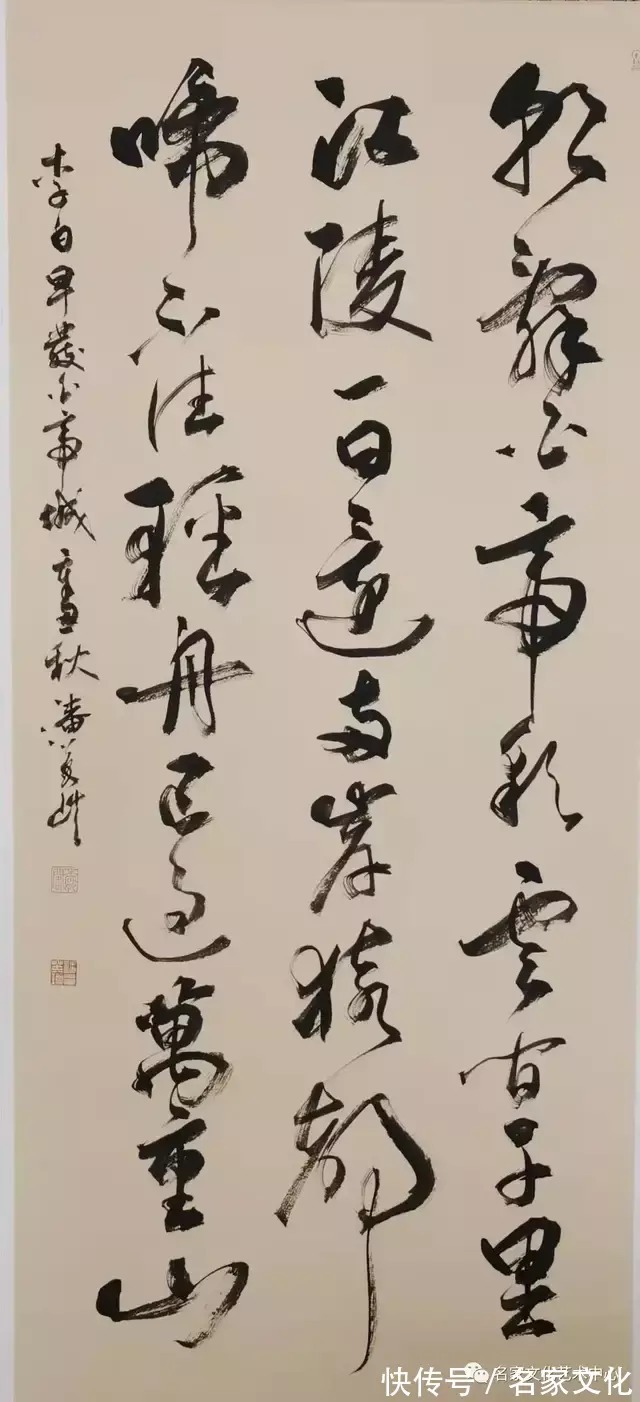 朝辭白帝彩雲間千里
江陵一日還兩岸猿
啼不住輕舟已過萬重山
李白早發白帝城 秋潘
名家文化艺术中心
快传号 / 名家文化